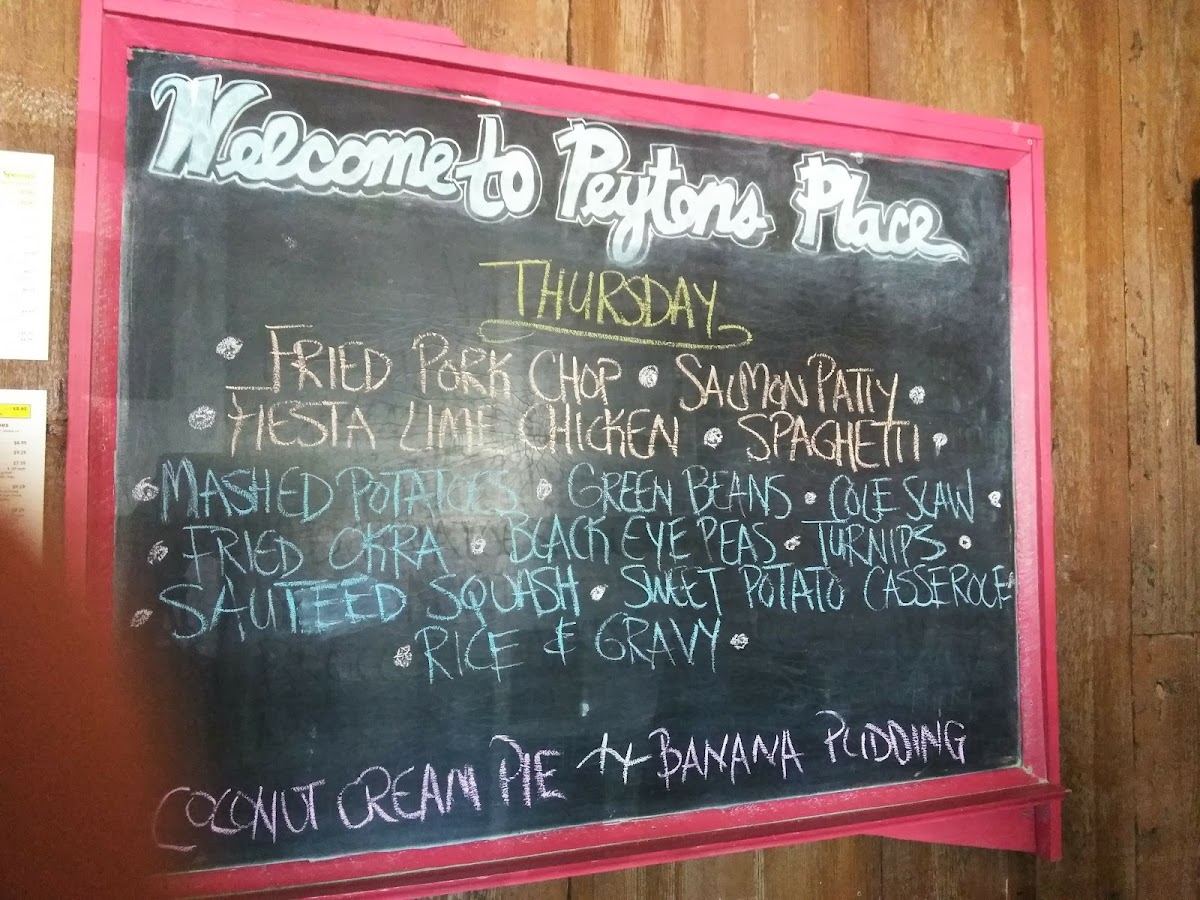 Welcome to Peytons Place
THURSDAY
• FRIED PORK CHOP • SALMON PATTY •
• FIESTA LIME CHICKEN • SPAGHETTI •
• MASHED POTATOES • GREEN BEANS • COLE SLAW •
• FRIED OKRA • BLACK EYE PEAS • TURNIPS •
• SAUTEED SQUASH • SWEET POTATO CASSEROLE
• RICE & GRAVY •
COCONUT CREAM PIE
BANANA PUDDING